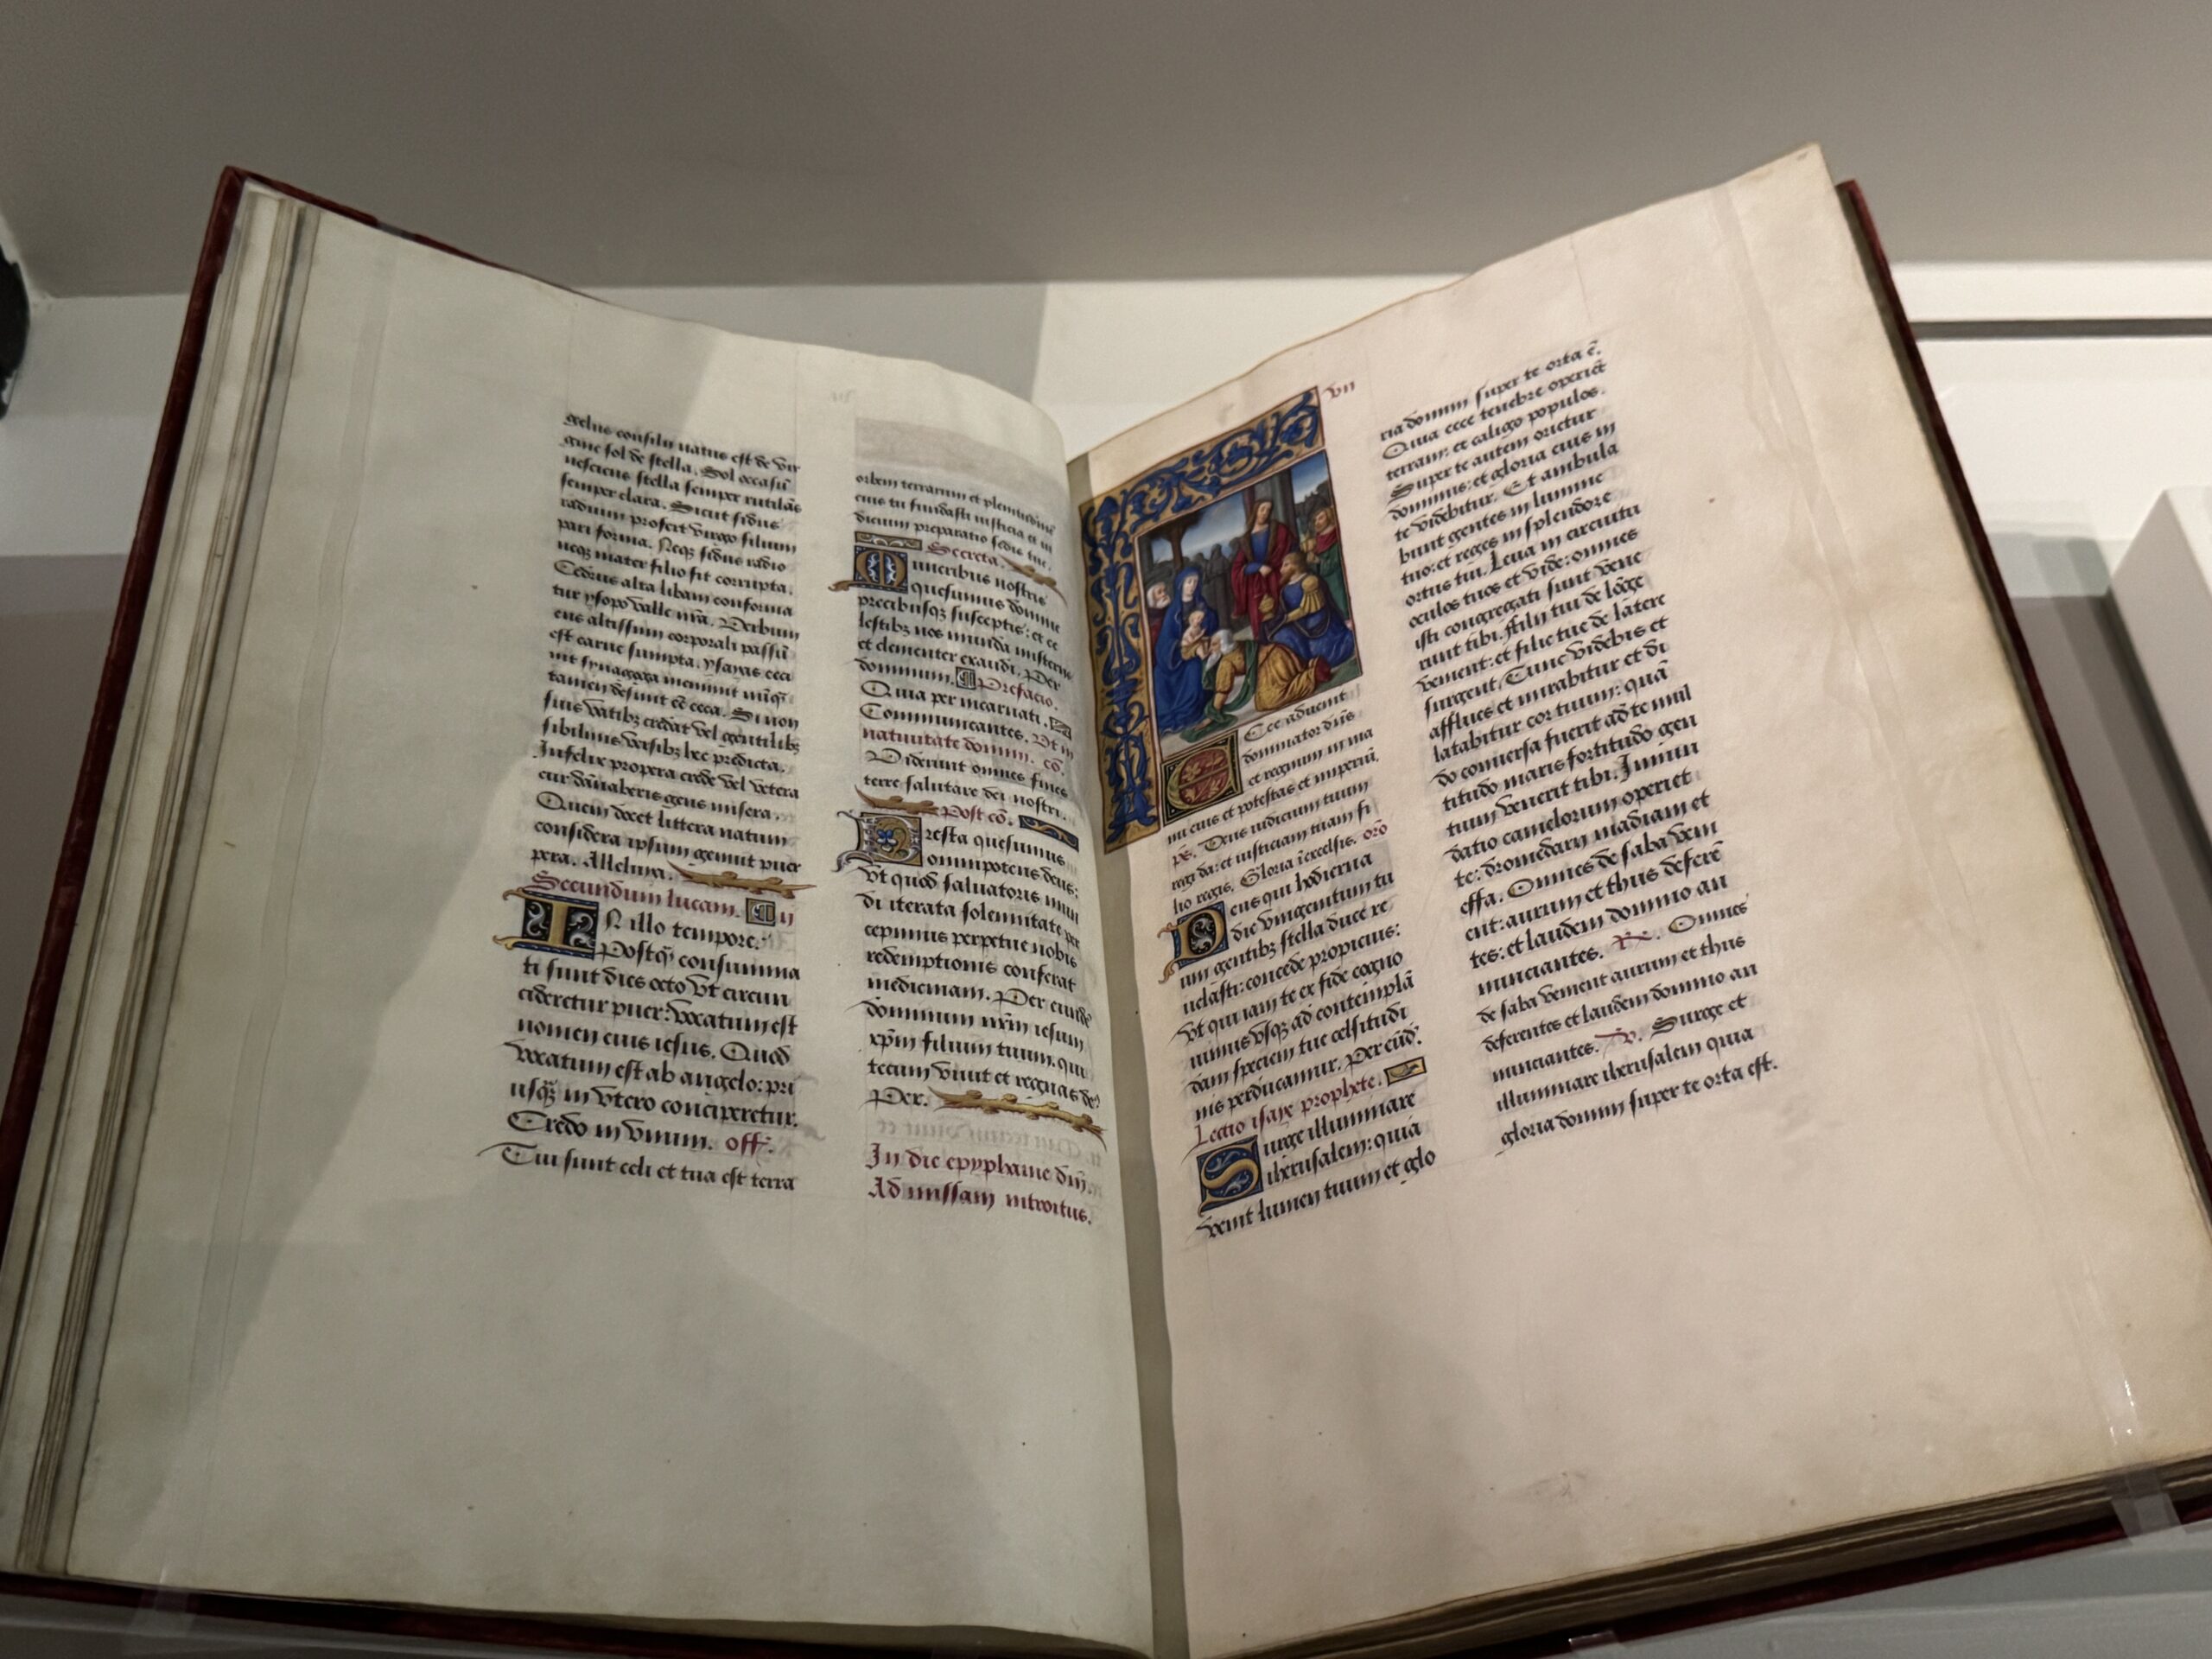 gelus consilii natus est de vir
gine sol de stella. Sol occasū
nesciens stella semper rutilās
semper clara. Sicut sidus
radium profert virgo filium
pari forma. Neqȝ sidus radio
neqȝ mater filio fit corrupta.
Cedrus alta libani conforma
tur ysopo valle nr̄a. Verbum
ens altissimi corporali passū
est carne sumpta. ysayas ceci
nit synagoga meminit nūq̄
tamen desinit eē ceca. Si non
suis vatibȝ credat vel gentilibȝ
sibilinis versibȝ hec predicta.
Infelix propera crede vel vetera
cur dānaberis gens misera.
Quem docet littera natum
considera ipsum genuit puer
pera. Alleluya.
Secundum lucam. In
IN illo tempore.
Postq̄ȝ consumma
ti sunt dies octo vt circun
cideretur puer: vocatum est
nomen eius iesus. Quod
vocatum est ab angelo: pri
usq̄ȝ in vtero conciperetur.
Credo in vnum. off.
Tui sunt celi et tua est terra
orbem terrarum et plenitudinē
eius tu fundasti iusticia et iu
dicium preparatio sedis tue.
Secreta.
Muneribus nostris
quesumus domine
precibusqȝ susceptis: et ce
lestibȝ nos munda misteriis
et clementer exaudi. Per
dominum. Prefacio.
Quia per incarnati.
Communicantes. Vt in
natiuitate domini. cō.
Viderunt omnes fines
terre salutare dei nostri.
Post cō.
Presta quesumus
omnipotens deus:
vt quod saluatoris mun
di iterata solemnitate per
cepimus perpetue nobis
redemptionis conferat
medicinam. Per eundē
dominum nr̄m iesum
xp̄m filium tuum. qui
tecum viuit et regnas de?
Per.
In die epyphanie dn̄i.
Ad missam introitus.
vii
Ecce aduenit
dominator dn̄s
et regnum in ma
nu eius et potestas et imperiū.
ps̄. Deus iudicium tuum
regi da: et iusticiam tuam fi
lio regis. Gloria ī excelsis. orō
Deus qui hodierna
die vnigenitum tu
um gentibȝ stella duce re
uelasti: concede propicius:
vt qui iam te ex fide cogno
uimus vsqȝ ad contemplā
dam speciem tue celsitudi
nis perducamur. Per eūd.
Lectio isaye prophete.
Surge illuminare
iherusalem: quia
venit lumen tuum et glo
ria domini super te orta ē.
Quia ecce tenebre operiēt
terram: et caligo populos.
Super te autem orietur
dominus: et gloria eius in
te videbitur. Et ambula
bunt gentes in lumine
tuo: et reges in splendore
ortus tui. Leua in circuitu
oculos tuos et vide: omnes
isti congregati sunt vene
runt tibi. Filii tui de lōge
venient: et filie tue de latere
surgent. Tunc videbis et
afflues et mirabitur et di
latabitur cor tuum: quā
do conuersa fuerit ad te mul
titudo maris fortitudo gen
tium venerit tibi. Inun
datio camelorum operiet
te: dromedarii madiam et
effa. Omnes de saba veni
ent: aurum et thus deferē
tes: et laudem domino an
nunciantes. Omnes
de saba venient aurum et thus
deferentes et laudem domino an
nunciantes. v. Surge et
illuminare iherusalem quia
gloria domini super te orta est.